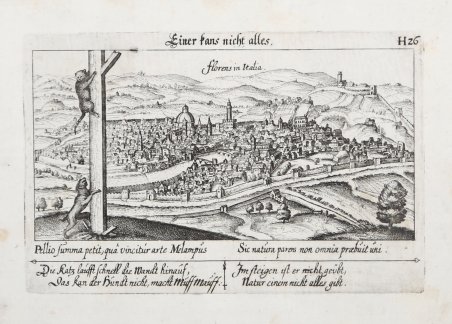 Einer kans nicht alles.
H 26
Florens in Italia.
Pellio summa petit, quâ vincitur arte Melampus
Sic natura parens non omnia præbuit uni.
Die Katz laüfft schnell die Wandt hinauf,
Das kan der Hundt nicht, macht Muff Mauff:
Im steigen ist er nicht geübt,
Natur einem nicht alles gibt.